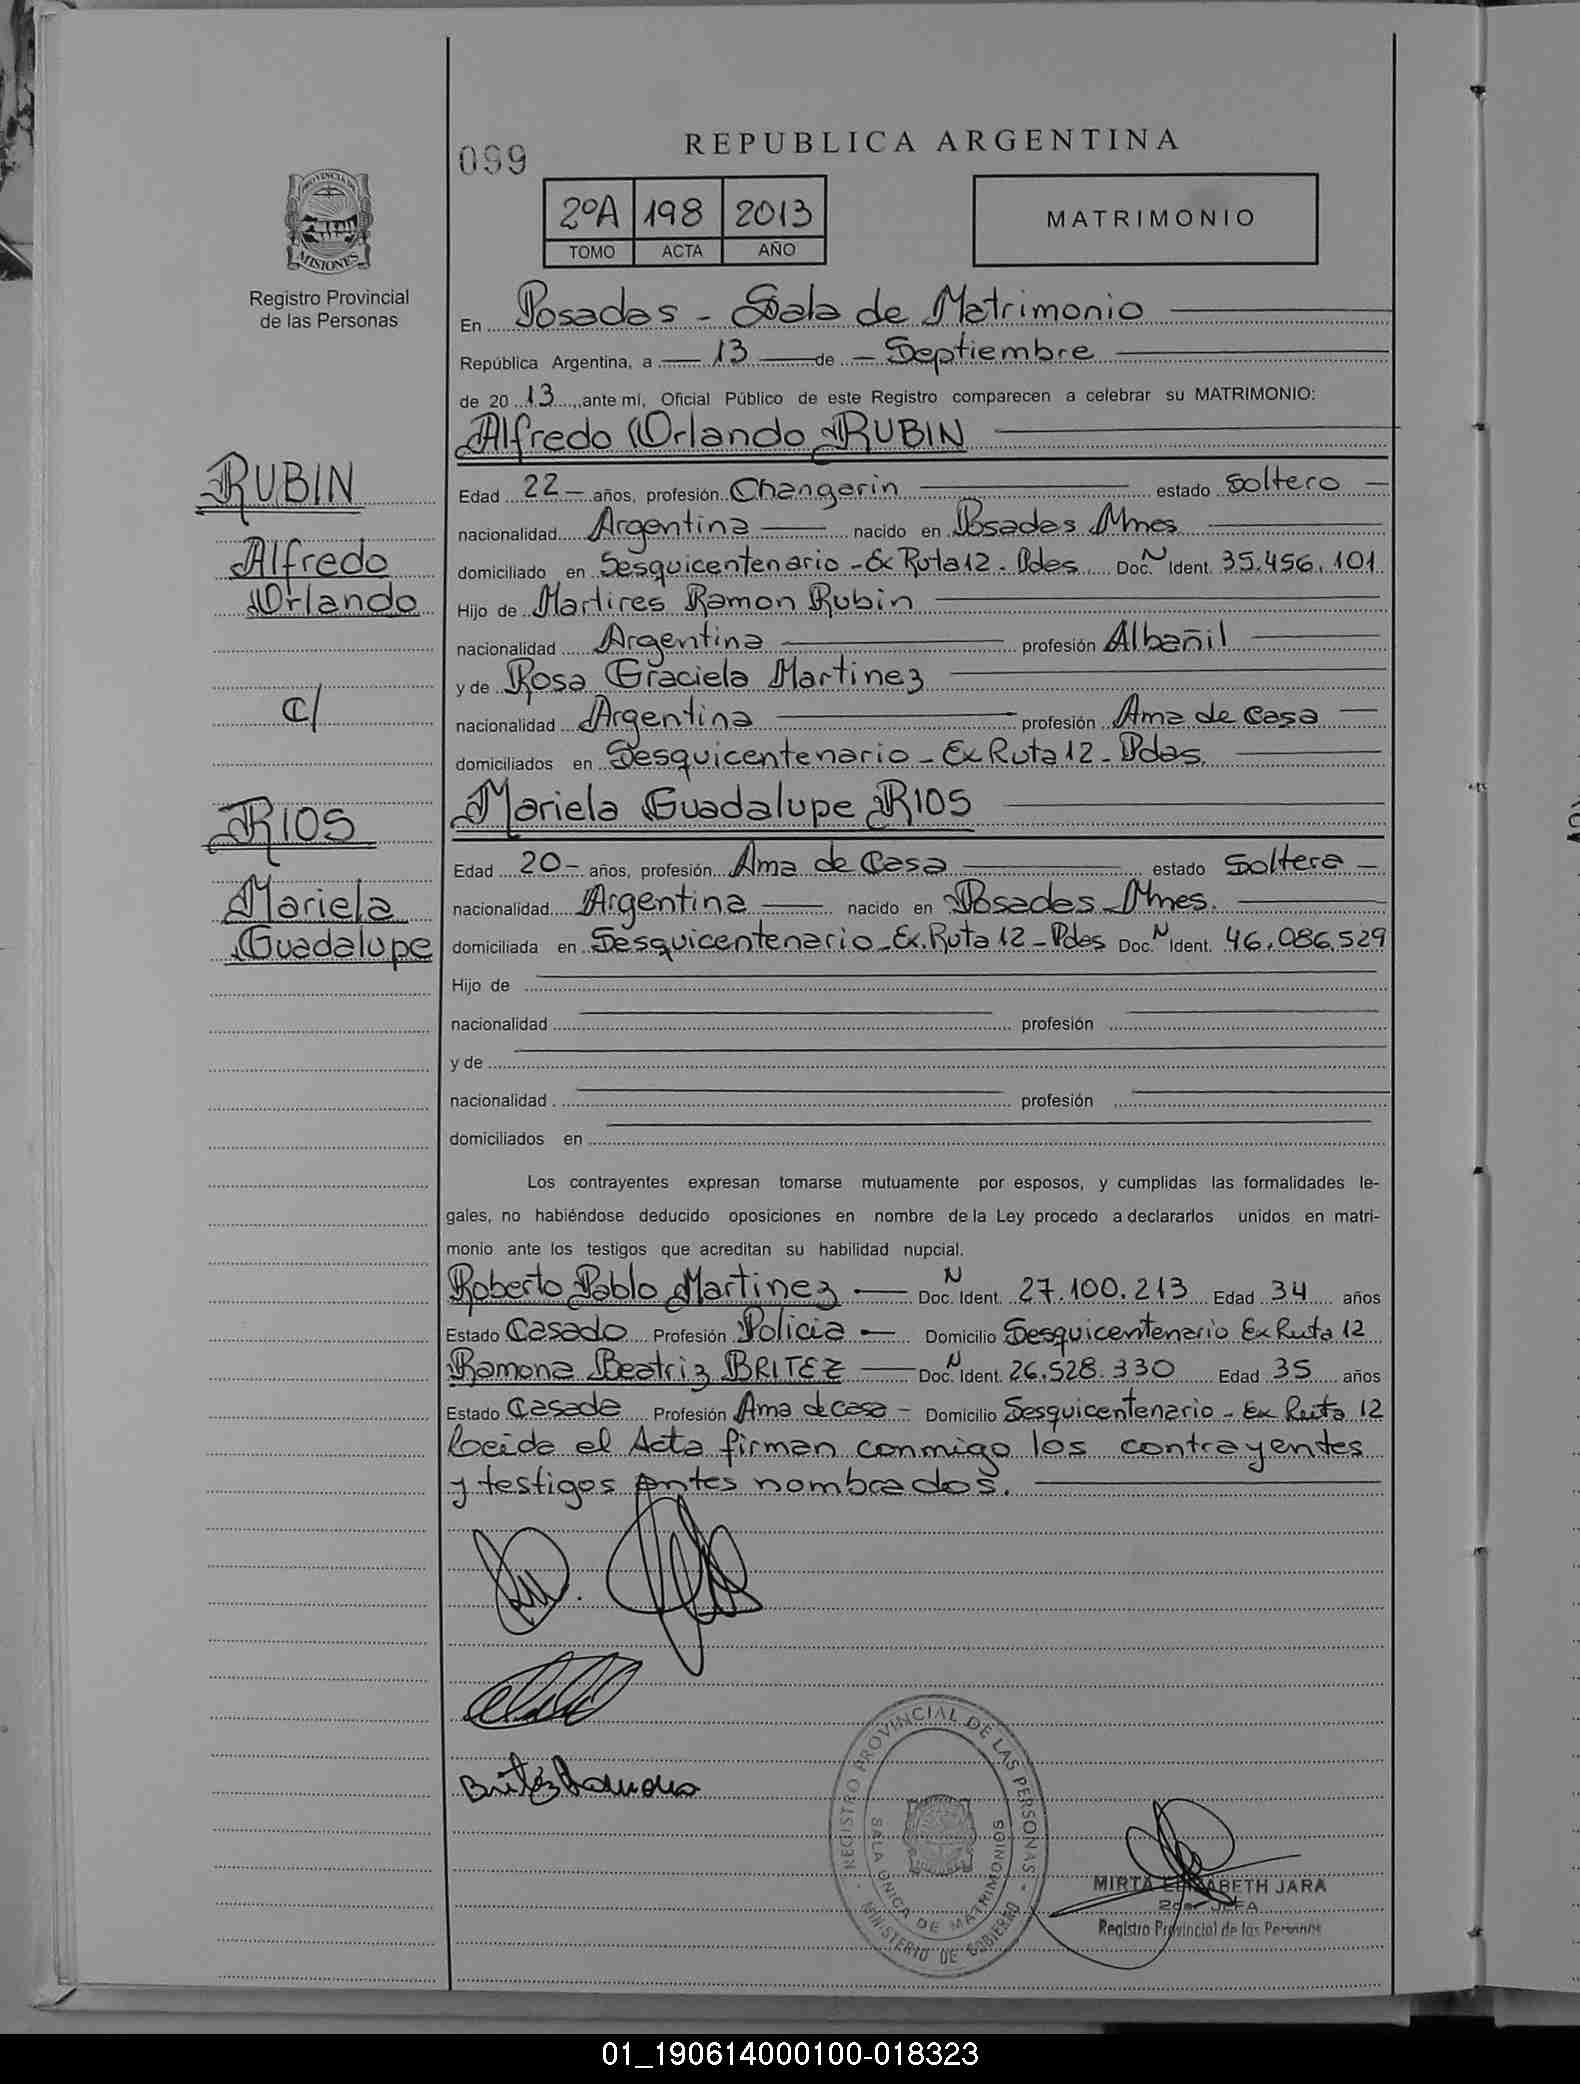 REPUBLICA ARGENTINA
099
2ºA 198 2013
TOMO ACTA AÑO
MATRIMONIO
PROVINCIA DE
MISIONES
Registro Provincial
de las Personas
En Posadas - Sala de Matrimonio
República Argentina, a 13 de Septiembre
de 2013, ante mí, Oficial Público de este Registro comparecen a celebrar su MATRIMONIO:
Alfredo Orlando RUBIN
RUBIN
Alfredo
Orlando
C/
RIOS
Mariela
Guadalupe
Edad 22 - años, profesión Changarin estado Soltero -
nacionalidad Argentina nacido en Posadas Mnes
domiciliado en Sesquicentenario - Ex Ruta 12 - Pdas Doc. N Ident. 35.456.101
Hijo de Martires Ramon Rubin
nacionalidad Argentina profesión Albañil
y de Rosa Graciela Martinez
nacionalidad Argentina profesión Ama de Casa
domiciliados en Sesquicentenario - Ex Ruta 12 - Pdas.
Mariela Guadalupe RIOS
Edad 20 - años, profesión Ama de Casa estado Soltera -
nacionalidad Argentina nacido en Posadas Mnes.
domiciliada en Sesquicentenario - Ex. Ruta 12 - Pdas Doc. N Ident. 46.086.529
Hijo de
nacionalidad profesión
y de
nacionalidad profesión
domiciliados en
Los contrayentes expresan tomarse mutuamente por esposos, y cumplidas las formalidades le-
gales, no habiéndose deducido oposiciones en nombre de la Ley procedo a declararlos unidos en matri-
monio ante los testigos que acreditan su habilidad nupcial.
Roberto Pablo Martinez Doc. N Ident. 27.100.213 Edad 34 años
Estado Casado Profesión Policia Domicilio Sesquicentenario Ex Ruta 12
Ramona Beatriz BRITEZ Doc. N Ident. 26.528.330 Edad 35 años
Estado Casada Profesión Ama de casa - Domicilio Sesquicentenario - Ex Ruta 12
Leeida el Acta firman conmigo los contrayentes
y testigos antes nombrados.
Britez Ramona
REGISTRO PROVINCIAL DE LAS PERSONAS
SALA UNICA DE MATRIMONIOS
MINISTERIO DE GOBIERNO
MIRTA ELIZABETH JARA
2da. JEFA
Registro Provincial de las Personas
01_190614000100-018323